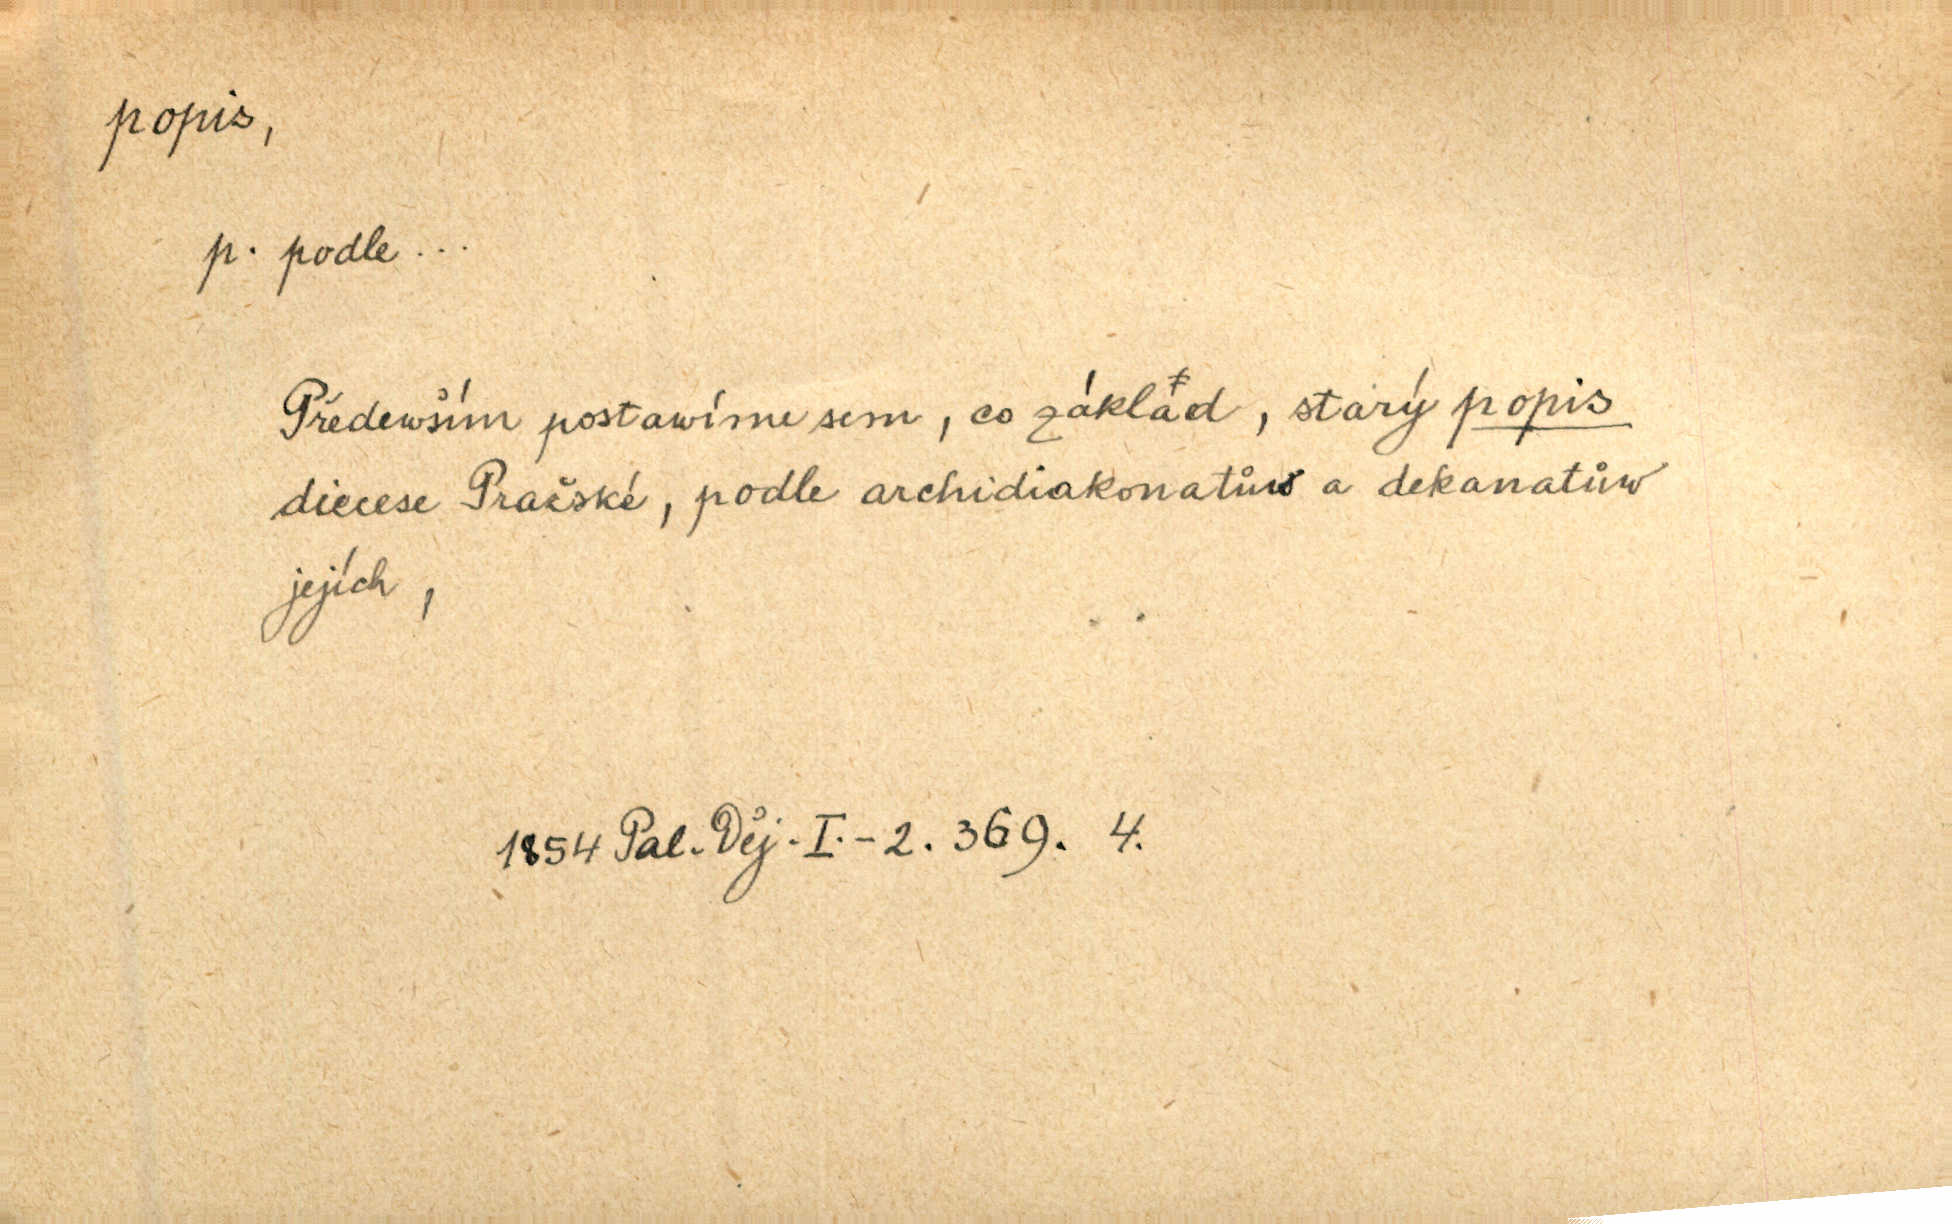 popis,
p. podle ...
Předewším postawíme sem, co základ, starý popis
diecese Pražské, podle archidiakonatůw a dekanatůw
jejích,
1854 Pal. Děj. I. - 2. 369. 4.